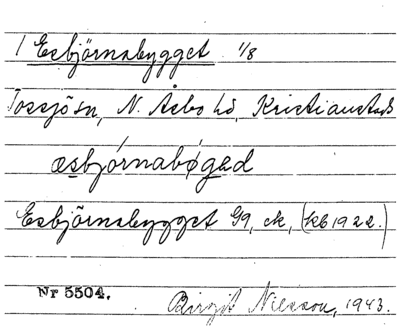 1 Esbjörnabygget 1/8
Tossjösn, N. Åsbo hd, Kristianstads
æsbjörnabøgəd
Esbjörnabygget Gg, ek, (kb 1922.)
Nr 5504.
Birgit Nilsson, 1943.